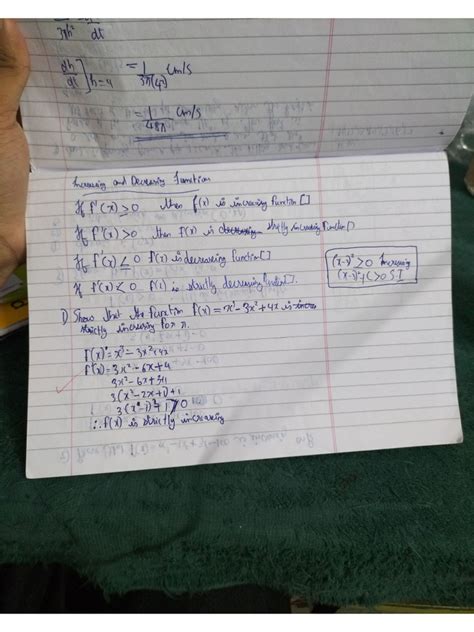 3πh² dt
dh/dt]h=4 = 1/3π(4²) cm/s
= 1/48π cm/s
Increasing and Decreasing Function
If f'(x) ≥ 0 then f(x) is increasing function []
If f'(x) > 0 then f(x) is decreasing strictly increasing function ()
If f'(x) ≤ 0 f(x) is decreasing function []
If f'(x) < 0 f(x) is strictly decreasing
(x-)² ≥ 0 increasing
(x-)²+c > 0 S.I
1) Show that the function f(x) = x³-3x²+4x is increa
strictly increasing for R.
f(x) = x³-3x²+4x
f'(x) = 3x²-6x+4
3x²-6x+3+1
3(x²-2x+1)+1
3(x-1)²+1 > 0
∴ f(x) is strictly increasing